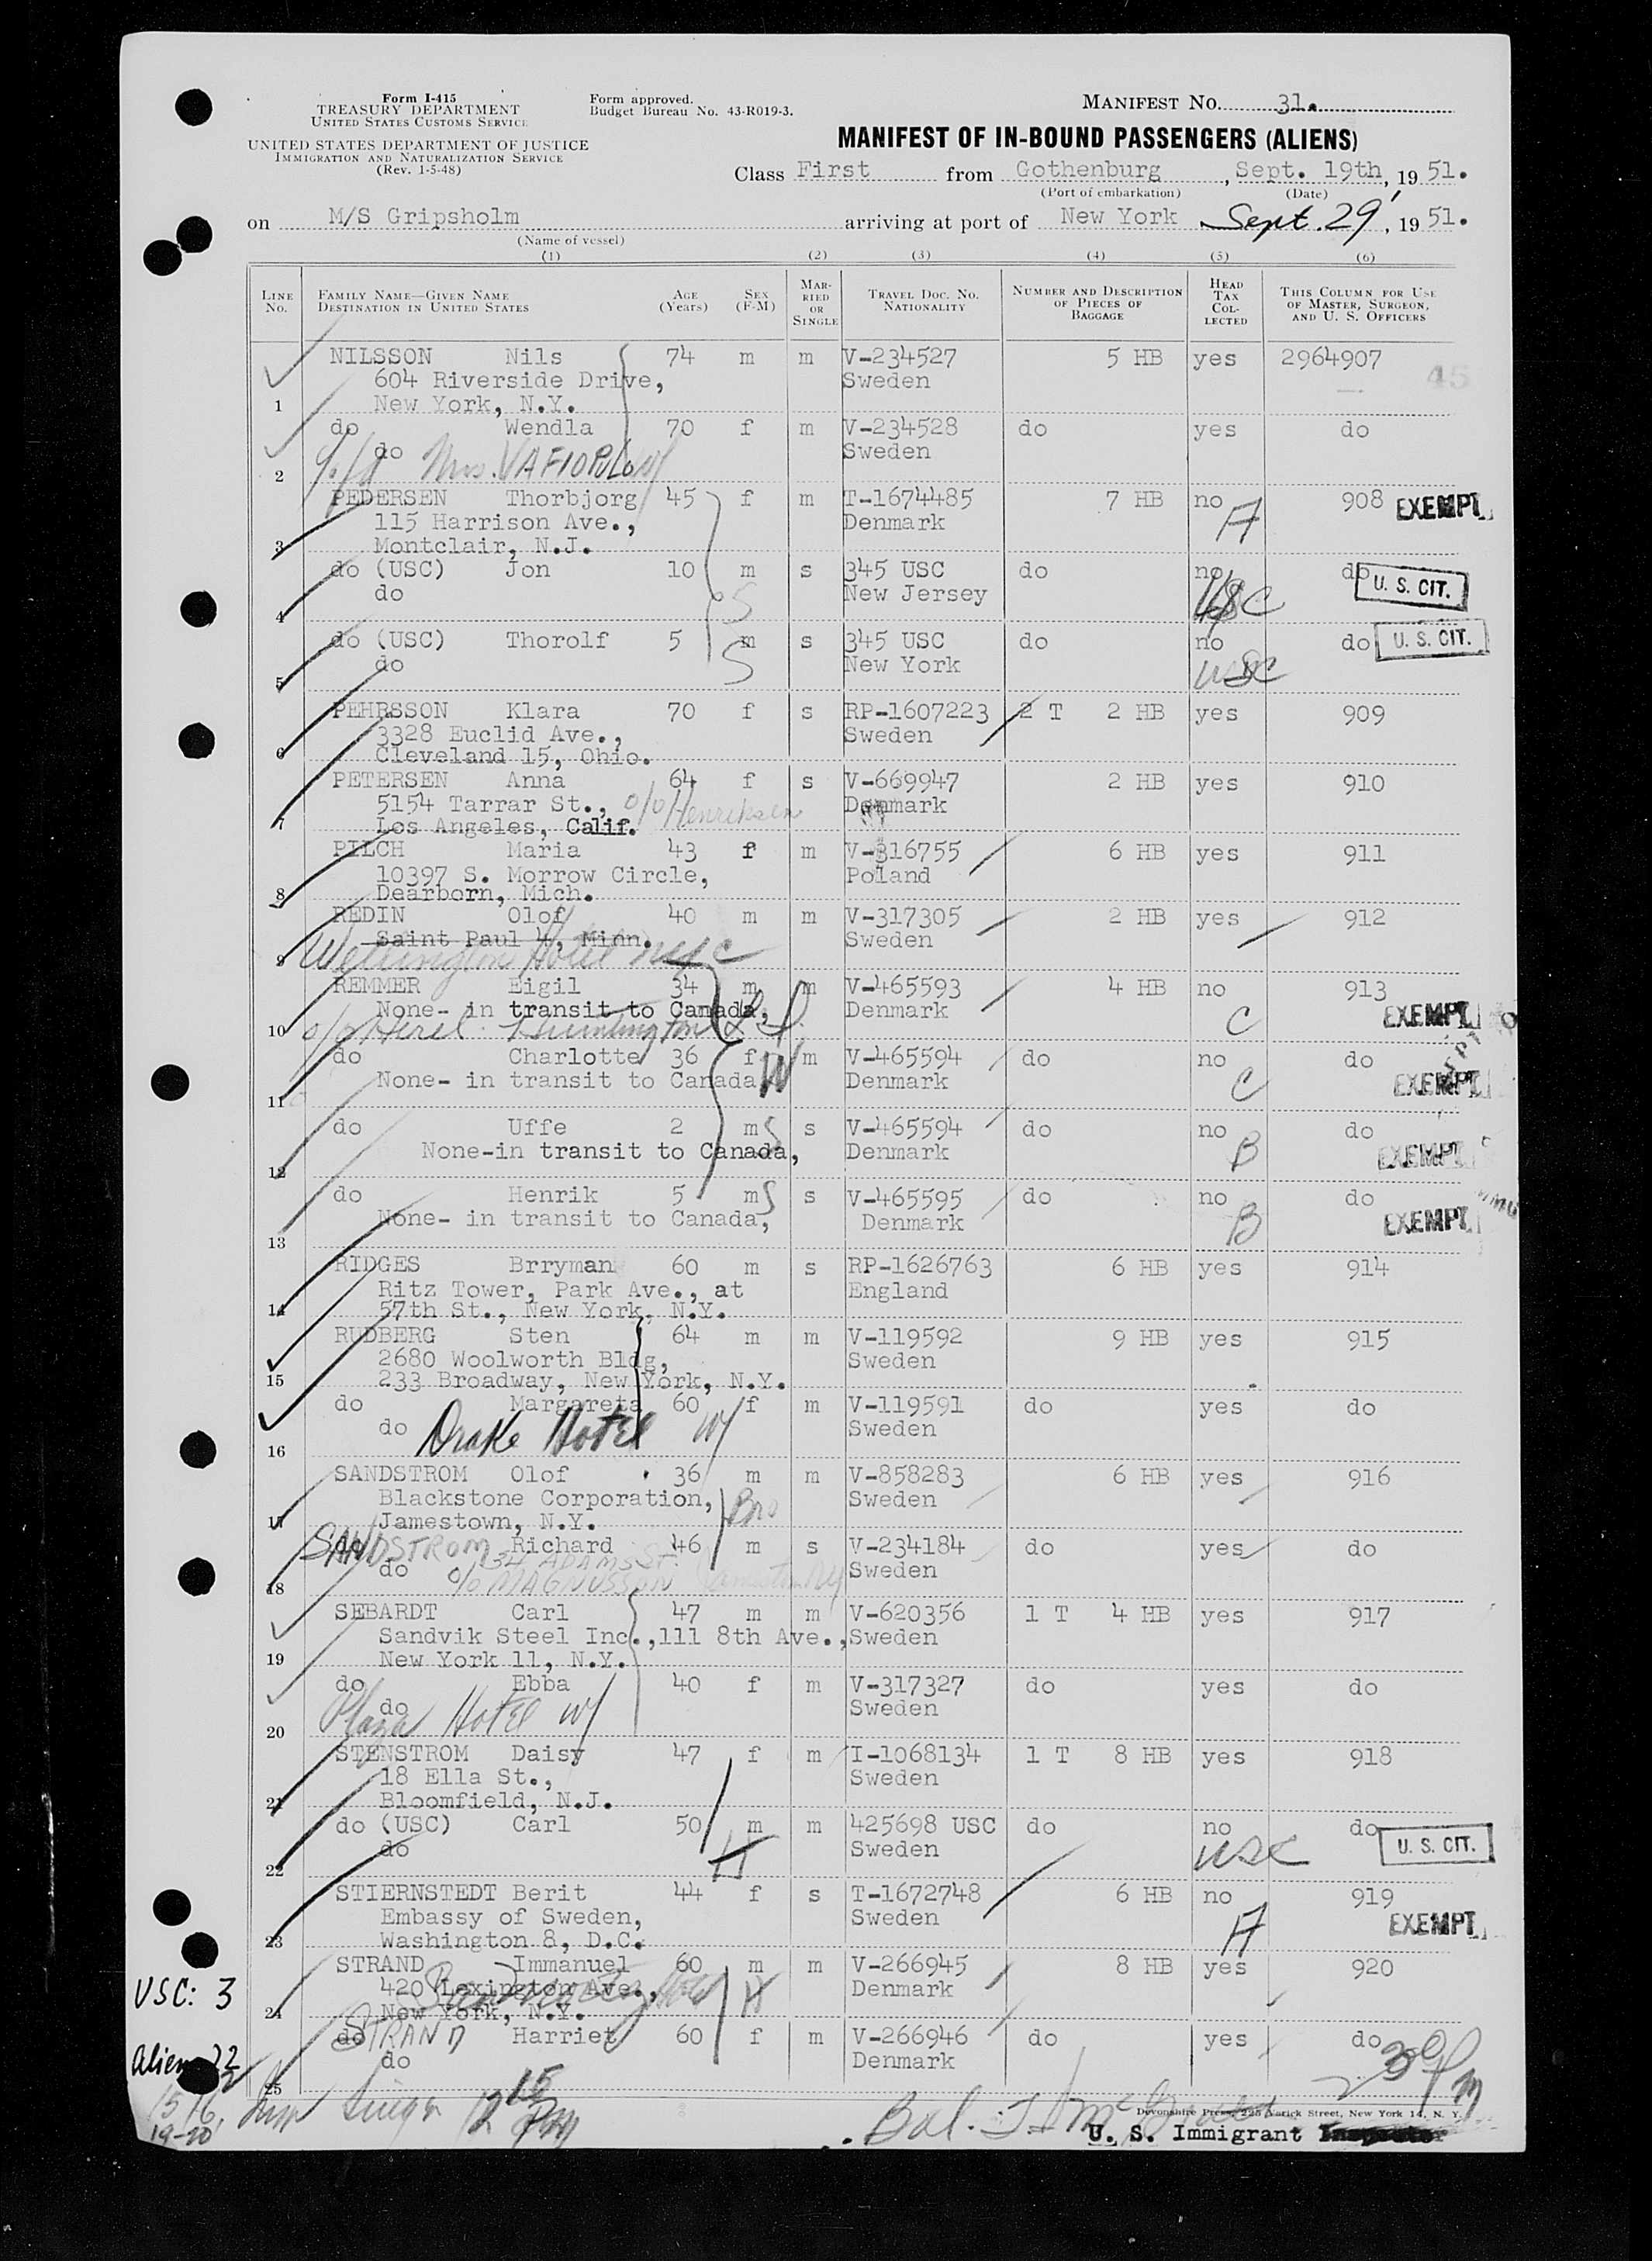 Form I-415
TREASURY DEPARTMENT
UNITED STATES CUSTOMS SERVICE
UNITED STATES DEPARTMENT OF JUSTICE
IMMIGRATION AND NATURALIZATION SERVICE
(Rev. 1-5-48)
Form approved.
Budget Bureau No. 43-R019-3.
MANIFEST NO. 31.
MANIFEST OF IN-BOUND PASSENGERS (ALIENS)
Class First from Gothenburg, Sept. 19th, 1951.
(Port of embarkation) (Date)
on M/S Gripsholm arriving at port of New York Sept. 29, 1951.
(Name of vessel)
(1) (2) (3) (4) (5) (6)
LINE NO. FAMILY NAME—GIVEN NAME DESTINATION IN UNITED STATES AGE (Years) SEX (F-M) MARRIED OR SINGLE TRAVEL DOC. NO. NATIONALITY NUMBER AND DESCRIPTION OF PIECES OF BAGGAGE HEAD TAX COLLECTED THIS COLUMN FOR USE OF MASTER, SURGEON, AND U. S. OFFICERS
NILSSON Nils 74 m m V-234527 5 HB yes 2964907
604 Riverside Drive, Sweden 45
1 New York, N.Y.
do Wendla 70 f m V-234528 do yes do
do Mrs. Sweden
2
PEDERSEN Thorbjorg 45 f m T-1674485 7 HB no 908 EXEMPT
115 Harrison Ave., Denmark A
3 Montclair, N.J.
do (USC) Jon 10 m s 345 USC do no do U. S. CIT.
do S New Jersey USC
4
do (USC) Thorolf 5 m s 345 USC do no do U. S. CIT.
do S New York USC
5
PEHRSSON Klara 70 f s RP-1607223 2 T 2 HB yes 909
3328 Euclid Ave., Sweden
6 Cleveland 15, Ohio.
PETERSEN Anna 64 f s V-669947 2 HB yes 910
5154 Tarrar St., c/o Henriksen Denmark
7 Los Angeles, Calif.
PILCH Maria 43 f m V-316755 6 HB yes 911
10397 S. Morrow Circle, Poland
8 Dearborn, Mich.
REDIN Olof 40 m m V-317305 2 HB yes 912
Saint Paul 4, Minn. Sweden
9 Wellington Hotel NYC
REMMER Eigil 34 m m V-465593 4 HB no 913
None- in transit to Canada, Denmark C EXEMPT
10 c/o Huntington
do Charlotte 36 f W m V-465594 do no do
None- in transit to Canada Denmark C EXEMPT
11
do Uffe 2 m S s V-465594 do no do
None-in transit to Canada, Denmark B EXEMPT
12
do Henrik 5 m S s V-465595 do no do
None- in transit to Canada, Denmark B EXEMPT
13
RIDGES Brryman 60 m s RP-1626763 6 HB yes 914
Ritz Tower, Park Ave., at England
14 57th St., New York, N.Y.
RUDBERG Sten 64 m m V-119592 9 HB yes 915
2680 Woolworth Bldg, Sweden
15 233 Broadway, New York, N.Y.
do Margareta 60 f m V-119591 do yes do
do Drake Hotel Sweden
16
SANDSTROM Olof 36 m m V-858283 6 HB yes 916
Blackstone Corporation, Bro Sweden
17 Jamestown, N.Y.
SANDSTROM Richard 46 m s V-234184 do yes do
do 34 ADAMS ST. Sweden
18 c/o MAGNUSSON
SEBARDT Carl 47 m m V-620356 1 T 4 HB yes 917
Sandvik Steel Inc.,111 8th Ave., Sweden
19 New York 11, N.Y.
do Ebba 40 f m V-317327 do yes do
do Plaza Hotel Sweden
20
STENSTROM Daisy 47 f m I-1068134 1 T 8 HB yes 918
18 Ella St., Sweden
21 Bloomfield, N.J.
do (USC) Carl 50 m m 425698 USC do no do
do H Sweden USC U. S. CIT.
22
STIERNSTEDT Berit 44 f s T-1672748 6 HB no 919
Embassy of Sweden, Sweden A EXEMPT
23 Washington 8, D.C.
STRAND Immanuel 60 m m V-266945 8 HB yes 920
420 Lexington Ave., H Denmark
24 New York, N.Y.
do STRAND Harriet 60 f m V-266946 do yes do
do Denmark
25
USC: 3
Alien 22
15-16,
19-20
12 15 PM
Bal.
Devonshire Press, 225 Varick Street, New York 14, N. Y.
U. S. Immigrant